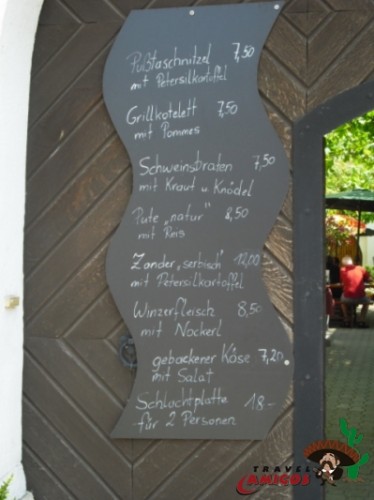 Pußtaschnitzel 7,50
mit Petersilkartoffel
Grillkotelett 7,50
mit Pommes
Schweinsbraten 7,50
mit Kraut u. Knödel
Pute "natur" 8,50
mit Reis
Zander "serbisch" 12,00-
mit Petersilkartoffel
Winzerfleisch 8,50
mit Nockerl
gebackener Käse 7,20
mit Salat
Schlachtplatte 18-
für 2 Personen
TRAVEL
AMIGOS